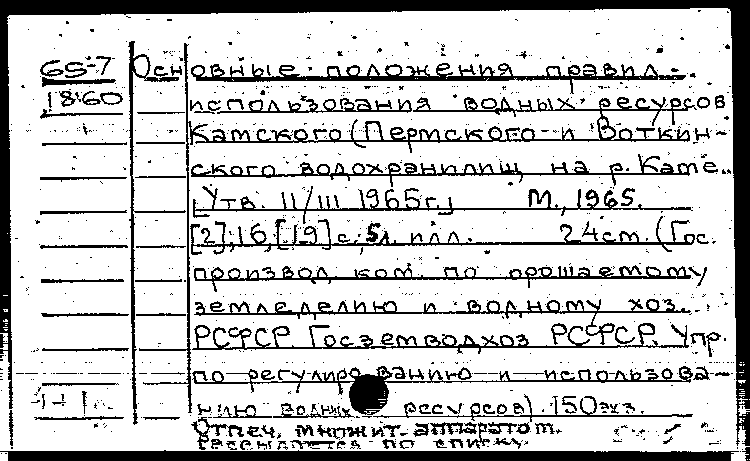 65-7 Основные положения правил
18·60 использования водных ресурсов
Камского (Пермского и Воткин-
ского водохранилищ на р. Каме.
[Утв. 11/III 1965г.] М., 1965.
[2]; 16, [19] с.; 5л. илл. 24см. (Гос.
производ. ком. по орошаемому
земледелию и водному хоз.
РСФСР. Госземводхоз РСФСР. Упр.
по регулированию и использова-
нию водных ресурсов). 150экз.
Отпеч. множит. аппаратом.
Рассылается по списку.